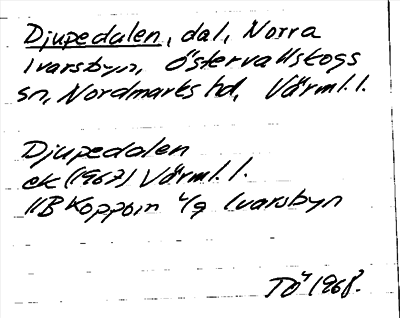 Djupedalen, dal, Norra
Ivarsbyn, Östervallskogs
sn, Nordmarks hd, Värml. l.
Djupedalen
ek (1967) Värml. l.
11B Koppom 4/9 Ivarsbyn
TÖ 1968.